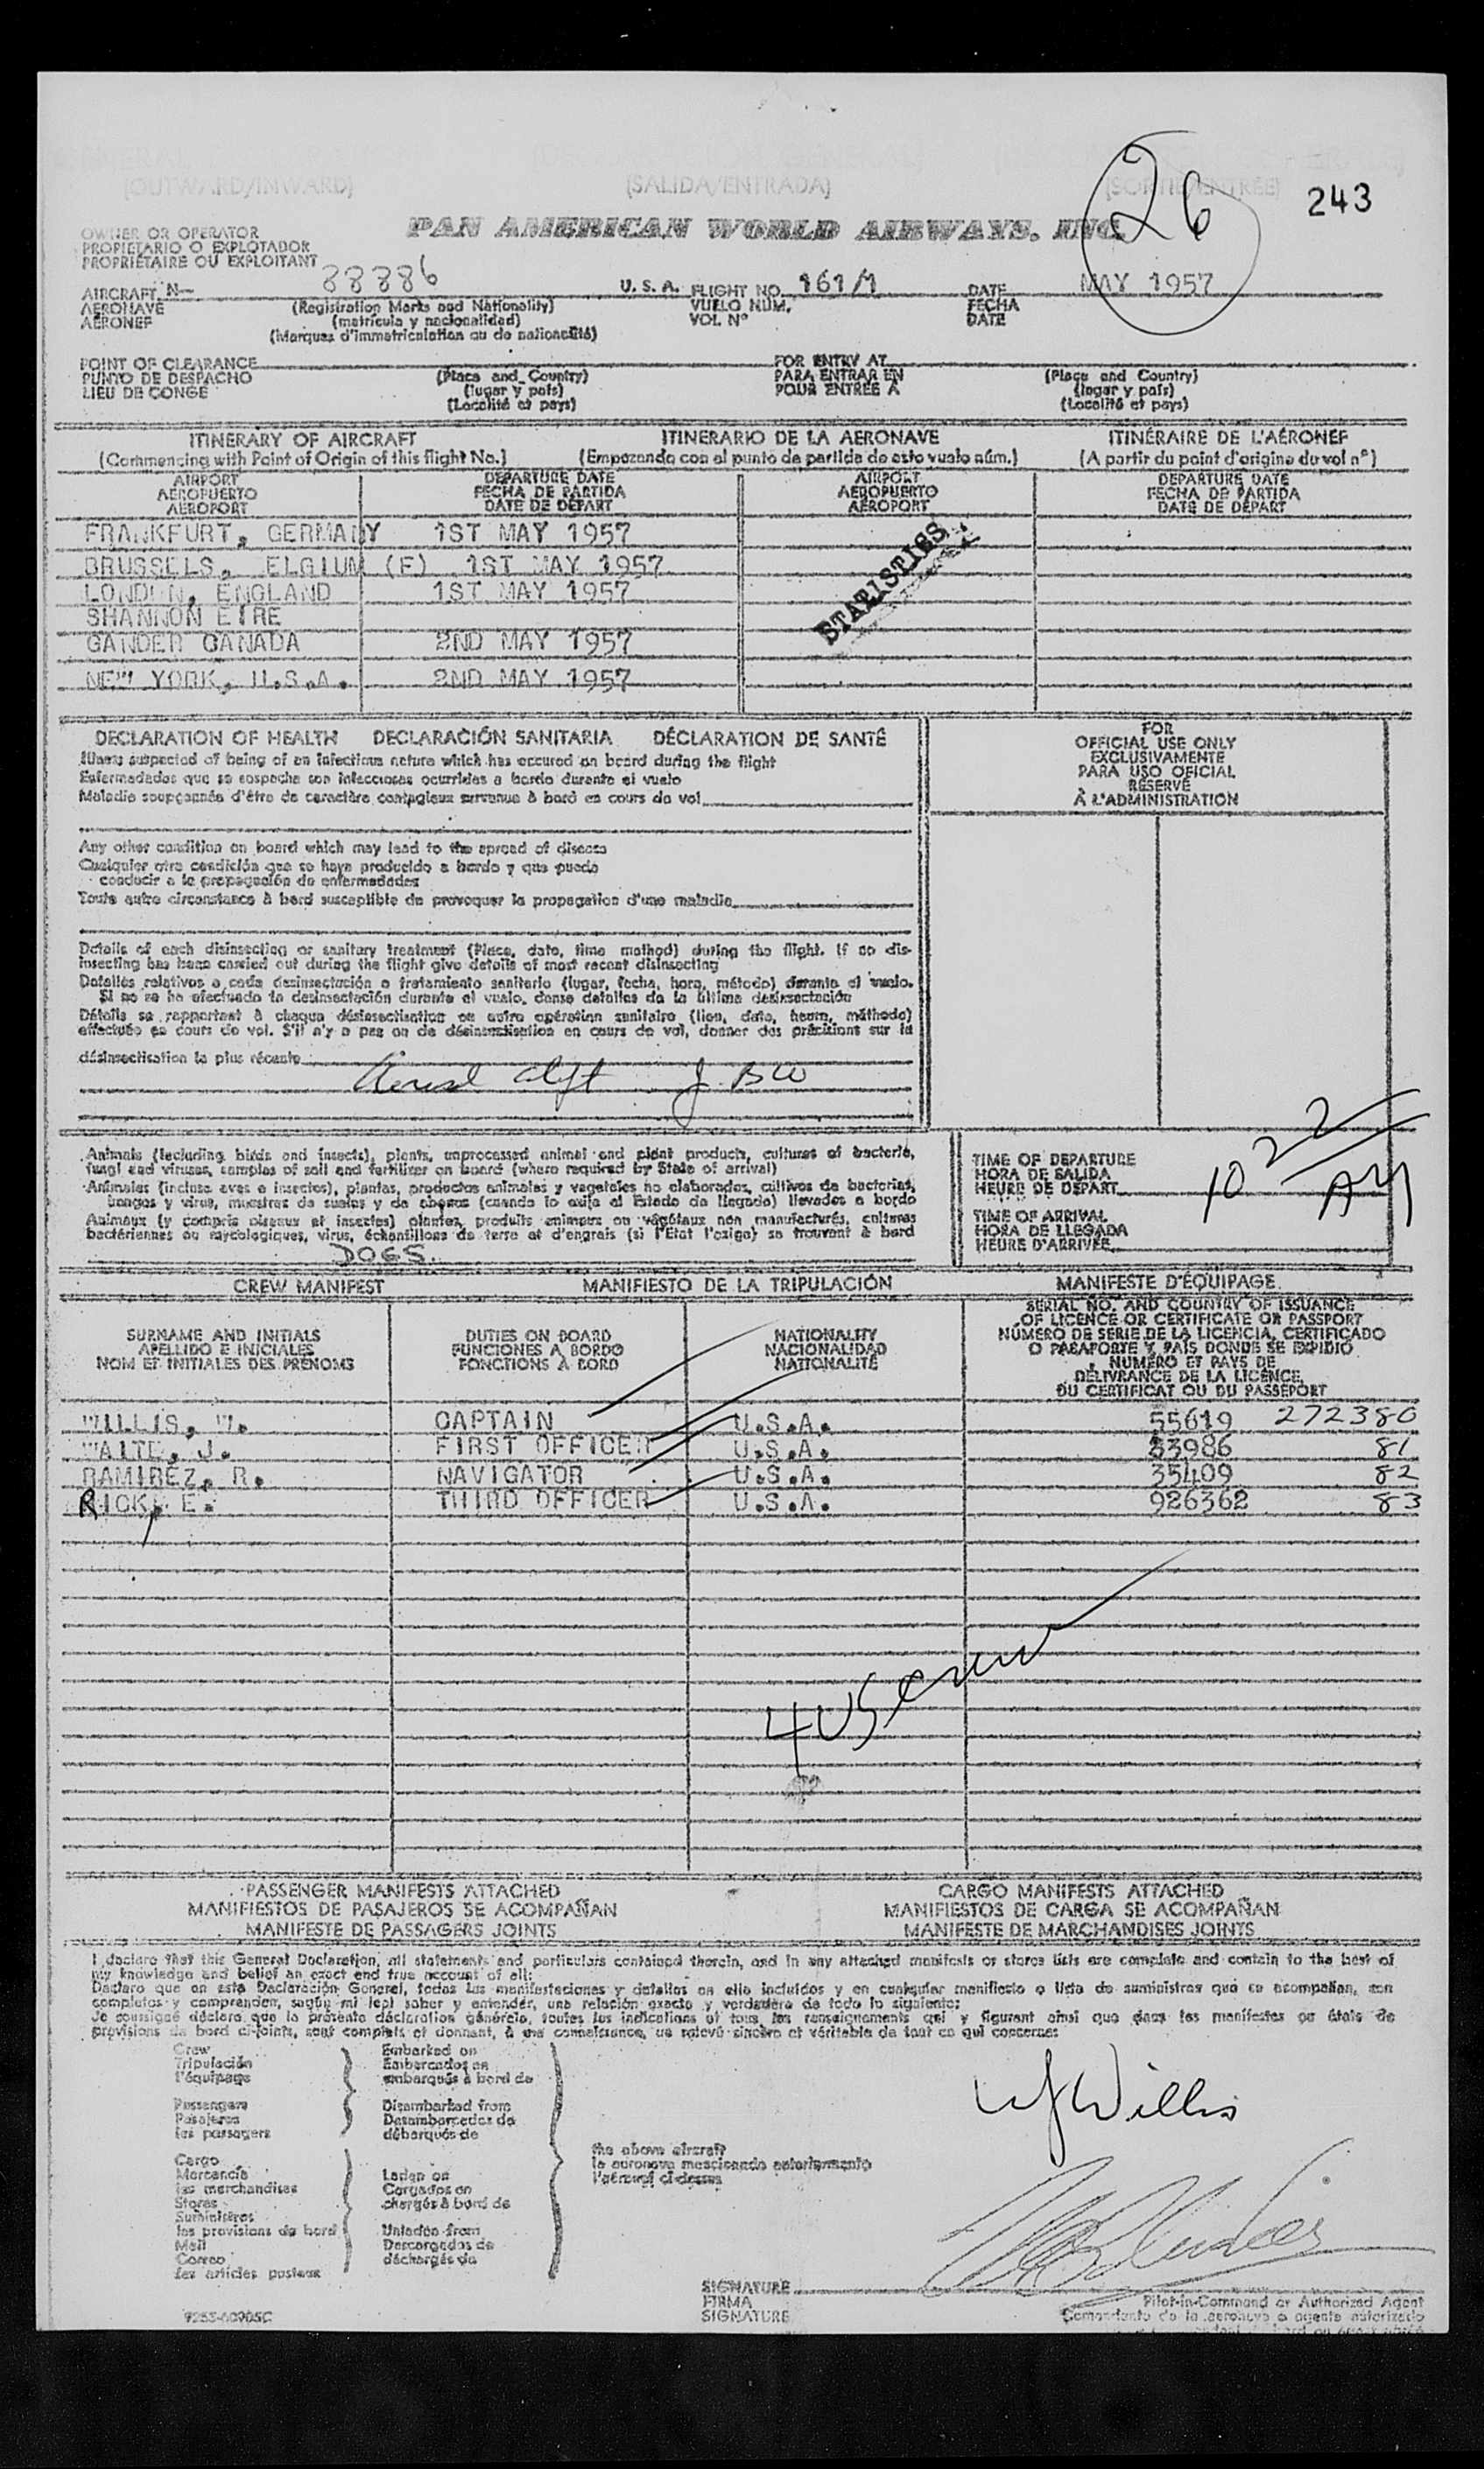 (OUTWARD/INWARD) (SALIDA/ENTRADA) (SORTIE/ENTRÉE)
26
243
OWNER OR OPERATOR
PROPIETARIO O EXPLOTADOR
PROPRIÉTAIRE OU EXPLOITANT
PAN AMERICAN WORLD AIRWAYS, INC.
AIRCRAFT N- 88886 U.S.A. FLIGHT NO. 161/1 DATE MAY 1957
AERONAVE (Registration Marks and Nationality) VUELO NUM. FECHA
AÉRONEF (matrícula y nacionalidad) VOL Nº DATE
(Marques d'immatriculation ou de nationalité)
POINT OF CLEARANCE FOR ENTRY AT
PUNTO DE DESPACHO (Place and Country) PARA ENTRAR EN (Place and Country)
LIEU DE CONGÉ (lugar y país) POUR ENTRÉE À (lugar y país)
(Localité et pays) (Localité et pays)
ITINERARY OF AIRCRAFT ITINERARIO DE LA AERONAVE ITINÉRAIRE DE L'AÉRONEF
(Commencing with Point of Origin of this flight No.) (Empezando con el punto de partida de esto vuelo núm.) (A partir du point d'origine du vol nº)
AIRPORT DEPARTURE DATE AIRPORT DEPARTURE DATE
AEROPUERTO FECHA DE PARTIDA AEROPUERTO FECHA DE PARTIDA
AÉROPORT DATE DE DÉPART AÉROPORT DATE DE DÉPART
FRANKFURT, GERMANY 1ST MAY 1957
BRUSSELS, ELGIUM (F) 1ST MAY 1957
LONDON, ENGLAND 1ST MAY 1957
SHANNON EIRE
GANDER CANADA 2ND MAY 1957
NEW YORK, U.S.A. 2ND MAY 1957
STATISTICS
DECLARATION OF HEALTH DECLARACIÓN SANITARIA DÉCLARATION DE SANTÉ
Illness suspected of being of an infectious nature which has occured on board during the flight
Enfermedades que se sospecha son infecciosas ocurridas a bordo durante el vuelo
Maladie soupçonnée d'être de caractère contagieux survenue à bord en cours de vol
Any other condition on board which may lead to the spread of disease
Cualquier otra condición que se haya producido a bordo y que puede
conducir a la propagación de enfermedades
Toute autre circonstance à bord susceptible de provoquer la propagation d'une maladie
Details of each disinsecting or sanitary treatment (Place, date, time method) during the flight. If no dis-
insecting has been carried out during the flight give details of most recent disinsecting
Detalles relativos a cada desinsectación o tratamiento sanitario (lugar, fecha, hora, método) durante el vuelo.
Si no se ha efectuado la desinsectación durante el vuelo, dense detalles de la última desinsectación
Détails se rapportant à chaque désinsectisation ou autre opération sanitaire (lieu, date, heure, méthode)
effectuée en cours de vol. S'il n'y a pas eu de désinsectisation en cours de vol, donner des précisions sur la
désinsectisation la plus récente
FOR
OFFICIAL USE ONLY
EXCLUSIVAMENTE
PARA USO OFICIAL
RÉSERVÉ
À L'ADMINISTRATION
Animals (including birds and insects), plants, unprocessed animal and plant products, cultures of bacteria,
fungi and viruses, samples of soil and fertilizer on board (where required by State of arrival)
Animales (incluse aves e insectos), plantas, productos animales y vegetales no elaborados, cultivos de bacterias,
hongos y virus, muestras de suelos y de abonos (cuando lo exija el Estado de llegada) llevados a bordo
Animaux (y compris oiseaux et insectes) plantes, produits animaux ou végétaux non manufacturés, cultures
bactériennes ou mycologiques, virus, échantillons de terre et d'engrais (si l'État l'exige) se trouvant à bord
DOGS.
TIME OF DEPARTURE
HORA DE SALIDA
HEURE DE DÉPART 10 22 AM
TIME OF ARRIVAL
HORA DE LLEGADA
HEURE D'ARRIVÉE
CREW MANIFEST MANIFIESTO DE LA TRIPULACIÓN MANIFESTE D'ÉQUIPAGE
SURNAME AND INITIALS
APELLIDO E INICIALES
NOM ET INITIALES DES PRÉNOMS
DUTIES ON BOARD
FUNCIONES A BORDO
FONCTIONS À BORD
NATIONALITY
NACIONALIDAD
NATIONALITÉ
SERIAL NO. AND COUNTRY OF ISSUANCE
OF LICENCE OR CERTIFICATE OR PASSPORT
NÚMERO DE SERIE DE LA LICENCIA, CERTIFICADO
O PASAPORTE Y PAÍS DONDE SE EXPIDIÓ
NUMÉRO ET PAYS DE
DÉLIVRANCE DE LA LICENCE,
DU CERTIFICAT OU DU PASSEPORT
WILLIS, W. CAPTAIN U.S.A. 55619 272380
WAITE, J. FIRST OFFICER U.S.A. 33986 81
RAMIREZ, R. NAVIGATOR U.S.A. 35409 82
RICK, E. THIRD OFFICER U.S.A. 926362 83
4 US crew
PASSENGER MANIFESTS ATTACHED CARGO MANIFESTS ATTACHED
MANIFIESTOS DE PASAJEROS SE ACOMPAÑAN MANIFIESTOS DE CARGA SE ACOMPAÑAN
MANIFESTE DE PASSAGERS JOINTS MANIFESTE DE MARCHANDISES JOINTS
I declare that this General Declaration, all statements and particulars contained therein, and in any attached manifests or stores lists are complete and contain to the best of
my knowledge and belief an exact and true account of all:
Declaro que en esta Declaración General, todas las manifestaciones y detalles en ella incluidos y en cualquier manifiesto o lista de suministros que se acompañan, son
completos y comprenden, según mi leal saber y entender, una relación exacta y verdadera de todo lo siguiente:
Je soussigné déclare que la présente déclaration générale, toutes les indications et tous les renseignements qui y figurent ainsi que dans les manifestes ou états de
provisions de bord ci-joints, sont complets et donnent, à ma connaissance, un relevé sincère et véritable de tout ce qui concerne:
Crew Embarked on
Tripulación Embarcados en
l'équipage embarqués à bord de
Passengers Disembarked from
Pasajeros Desembarcados de
les passagers débarqués de
Cargo
Mercancía Laden on
les marchandises Cargados en
Stores chargés à bord de
Suministros
les provisions de bord Unladen from
Mail Descargados de
Correo déchargés de
les articles postaux
the above aircraft
la aeronave mencionada anteriormente
l'aéronef ci-dessus
WJ Willis
SIGNATURE
FIRMA
SIGNATURE
Pilot-in-Command or Authorized Agent
Comandante de la aeronave o agente autorizado
9255-60905C